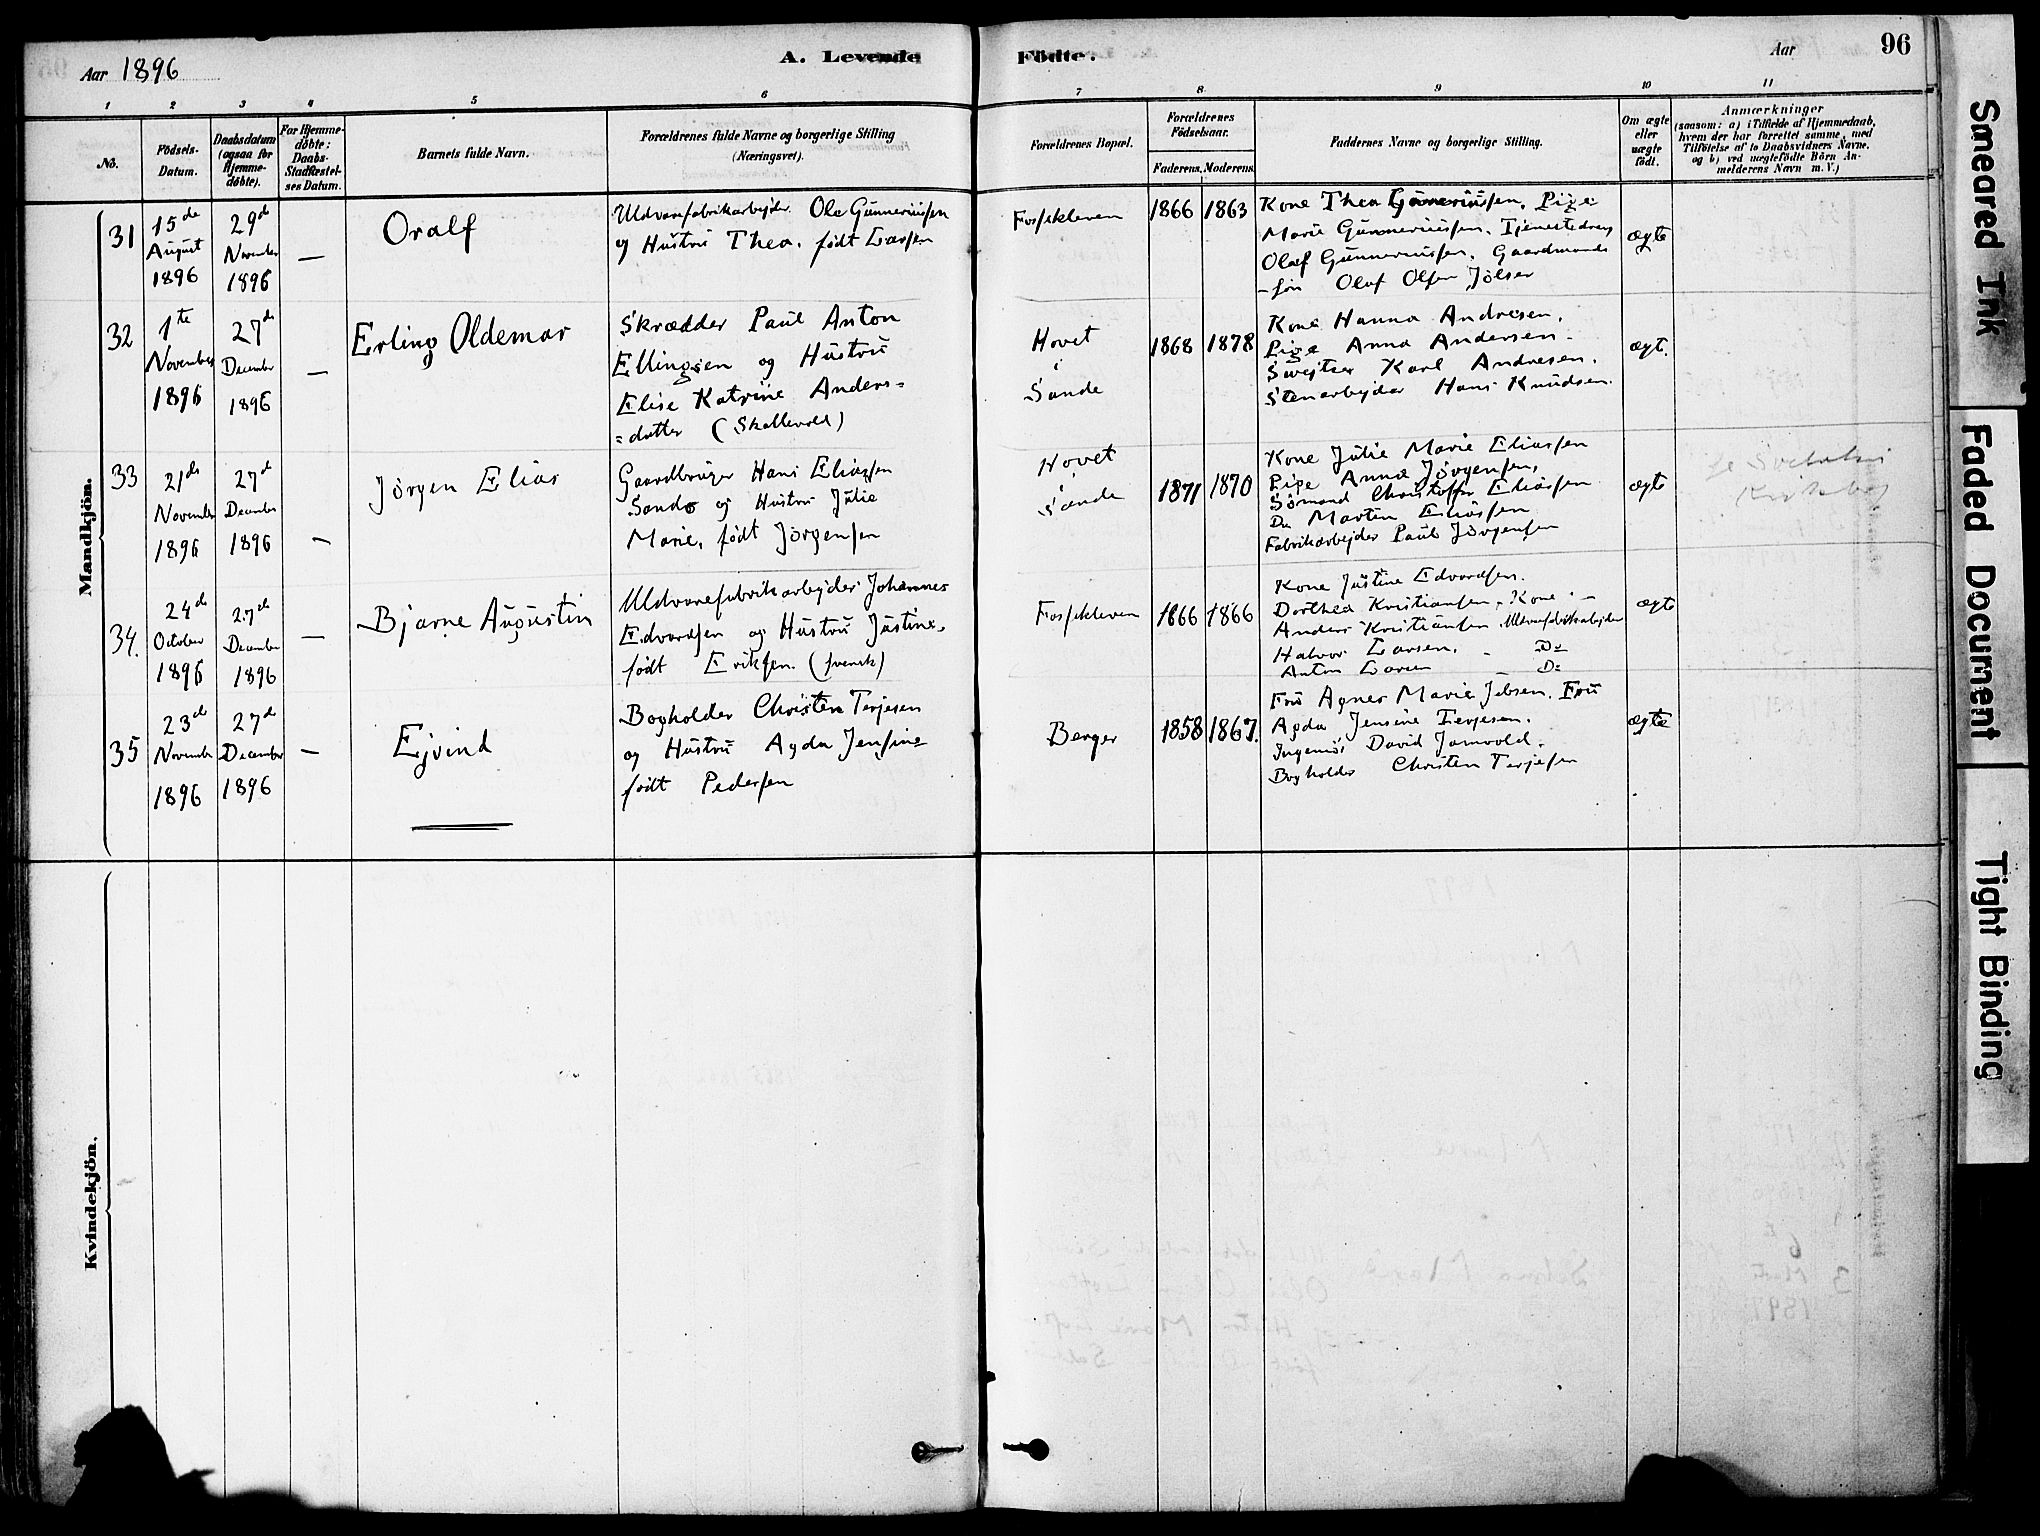 Aar 1896
A. Levende
Födte.
Aar
96
1 2 3 4 5 6 7 8 9 10 11
No.
Födsels-
Datum.
Daabsdatum
(ogsaa for
Hjemme-
döbte).
For Hjemme-
döbte:
Daabs-
Stadfæstel-
ses Datum.
Barnets fulde Navn.
Forældrenes fulde Navne og borgerlige Stilling
(Næringsvei).
Forældrenes Bopæl.
Forældrenes
Födselsaar.
Faderens. Moderens.
Faddernes Navne og borgerlige Stilling.
Om ægte
eller
uægte
födt.
Anmærkninger
(saasom: a) i Tilfælde af Hjemmedaab,
hvem der har forrettet samme, med
Tilföielse af to Daabsvidners Navne.
og b) ved uægtefödte Börn An-
melderens Navn m. V.)
Mandkjön.
31
15de
August
1896
29d
November
1896
—
Oralf
Uldvarefabrikarbejder Ole Gunneriussen
og Hustru Thea, født Larssen
Fossekleven
1866 1863
Kone Thea Gunneriussen, Pige
Marie Gunneriussen, Tjenestedreng
Olaf Gunneriussen, Gaardmands
-søn Olaf Olsen Jølser
ægte
32
1te
November
1896
27de
December
1896
—
Erling Oldemar
Skrædder Paul Anton
Ellingsen og Hustru
Elise Katrine Anders=
=datter (Skallevold)
Hovet
i
Sande
1868 1878
Kone Hanna Andresen,
Pige Anna Andersen
Svejtser Karl Andresen,
Stenarbejder Hans Knudsen.
ægt.
33
21de
November
1896
27d
December
1896
—
Jörgen Elias
Gaardbruger Hans Eliassen
Sando og Hustru Julie
Marie, født Jörgensen
Hovet
i
Sande
1871 1870
Kone Julie Marie Eliassen
Pige Anna Jörgensen,
Sömand Christoffer Eliassen
Do Marten Eliassen
Fabrikarbejder Paul Jörgensen
ægte
34.
24de
October
1896
27de
December
1896
—
Bjarne Augustin
Uldvarefabrikarbejder Johannes
Edvardsen og Hustru Justine,
født Eriksen. (svensk)
Fossekleven
1866 1866
Kone Justine Edvardsen.
Dorthea Kristiansen, Kone
Anders Kristiansen, Uldvarefabrikarbejder
Halvor Larsen, - Do
Anton Larsen Do
ægte
35
23de
November
1896
27de
December
1896
—
Ejvind
Bogholder Christen Terjesen
og Hustru Agda Jensine
født Pedersen
Berger
1858 1867.
Fru Agnes Marie Jebsen, Fru
Agda Jensine Terjesen.
Ingeniör David Jarnvold.
Bogholder Christen Terjesen
ægte
Kvindekjön.
Smeared Ink
Faded Document
Tight Binding